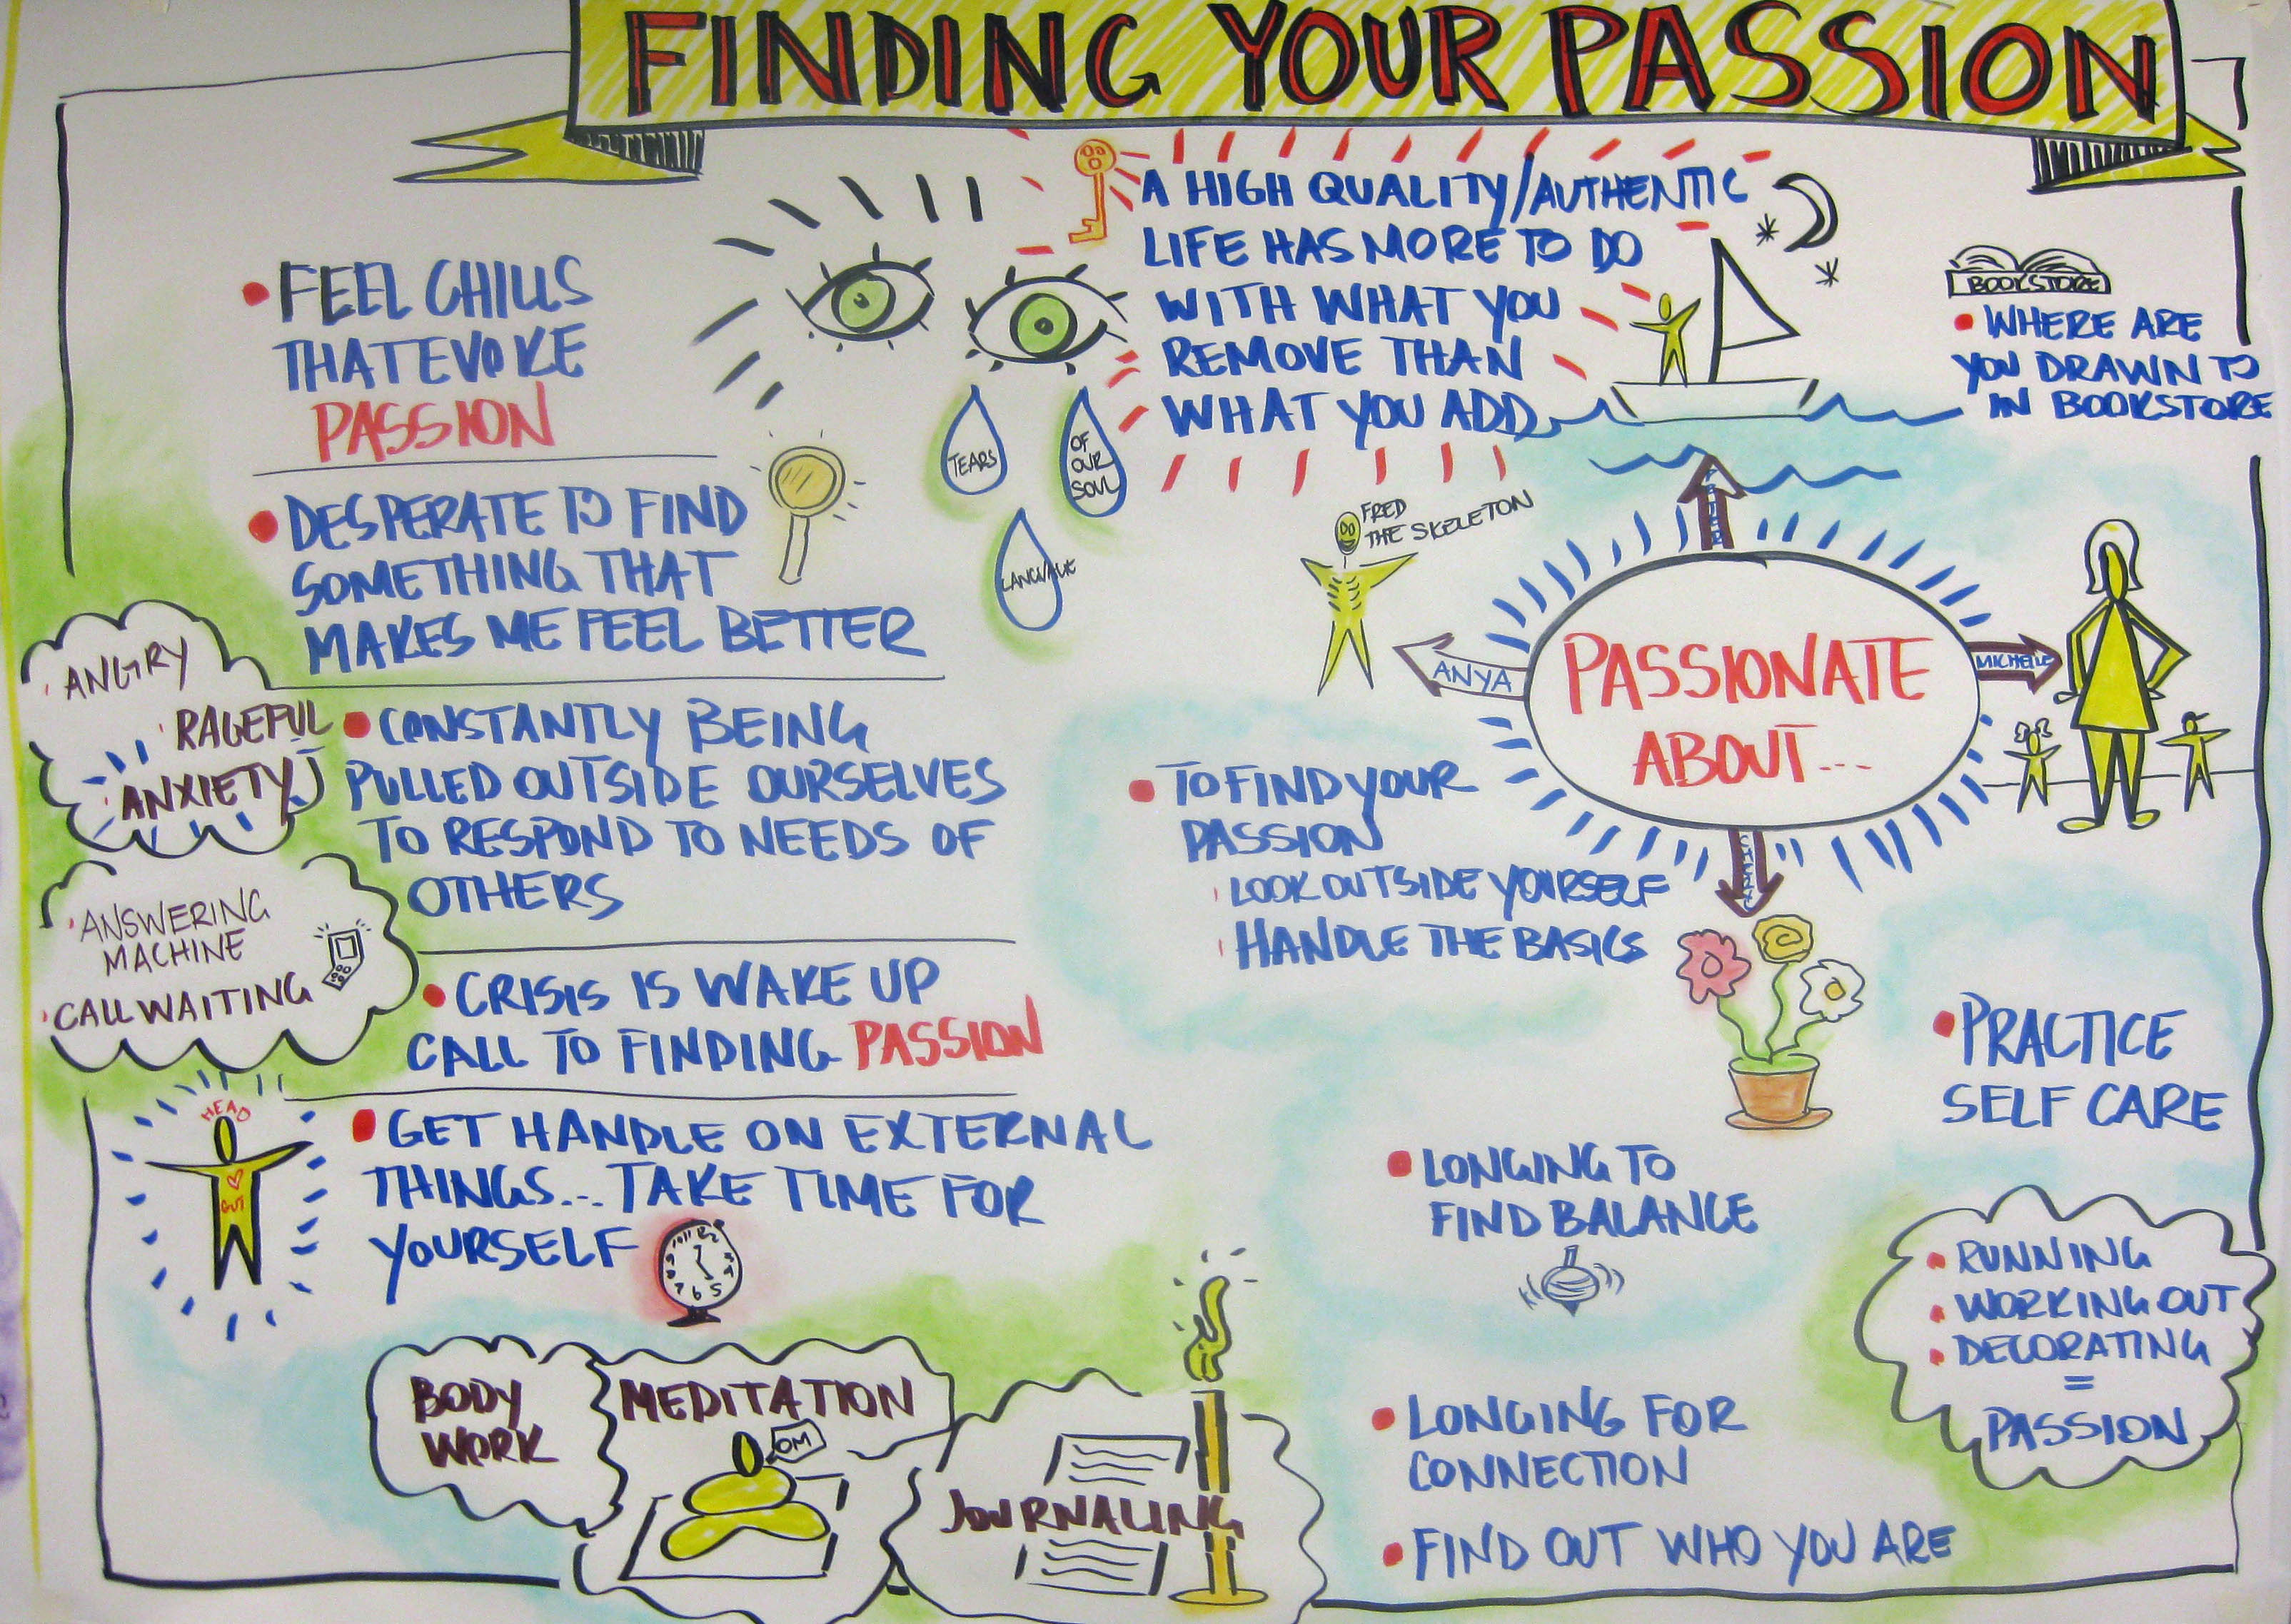 FINDING YOUR PASSION
• FEEL CHILLS
THAT EVOKE
PASSION
• DESPERATE TO FIND
SOMETHING THAT
MAKES ME FEEL BETTER
ANGRY
RAGEFUL
ANXIETY
• CONSTANTLY BEING
PULLED OUTSIDE OURSELVES
TO RESPOND TO NEEDS OF
OTHERS
ANSWERING
MACHINE
CALL WAITING
• CRISIS IS WAKE UP
CALL TO FINDING PASSION
HEAD
GUT
• GET HANDLE ON EXTERNAL
THINGS... TAKE TIME FOR
YOURSELF
BODY
WORK
MEDITATION
OM
JOURNALING
TEARS
OF
OUR
SOUL
A HIGH QUALITY/AUTHENTIC
LIFE HAS MORE TO DO
WITH WHAT YOU
REMOVE THAN
WHAT YOU ADD
BOOKSTORE
• WHERE ARE
YOU DRAWN TO
IN BOOKSTORE
FRED
THE SKELETON
ANYA
PASSIONATE
ABOUT...
MICHELLE
• TO FIND YOUR
PASSION
LOOK OUTSIDE YOURSELF
HANDLE THE BASICS
• PRACTICE
SELF CARE
• LONGING TO
FIND BALANCE
• RUNNING
• WORKING OUT
• DECORATING
=
PASSION
• LONGING FOR
CONNECTION
• FIND OUT WHO YOU ARE